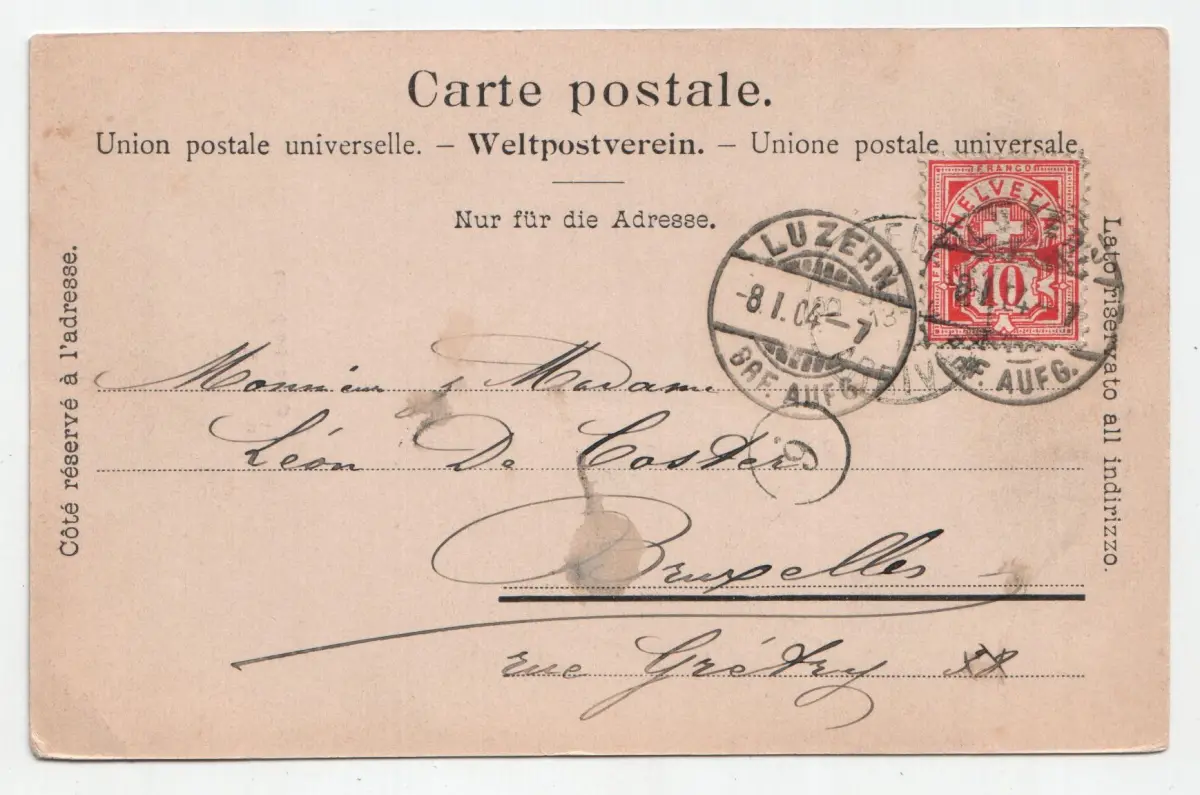 Carte postale.
Union postale universelle. – Weltpostverein. – Unione postale universale
Nur für die Adresse.
Côté réservé à l'adresse.
Lato riservato all indirizzo.
FRANCO
HELVETIA
10
LUZERN
-8.I.04-7
BRF. AUFG.
-8.I. -7
BRF. AUFG.
9
Monsieur & Madame
Léon De Coster
Bruxelles
rue Grétry